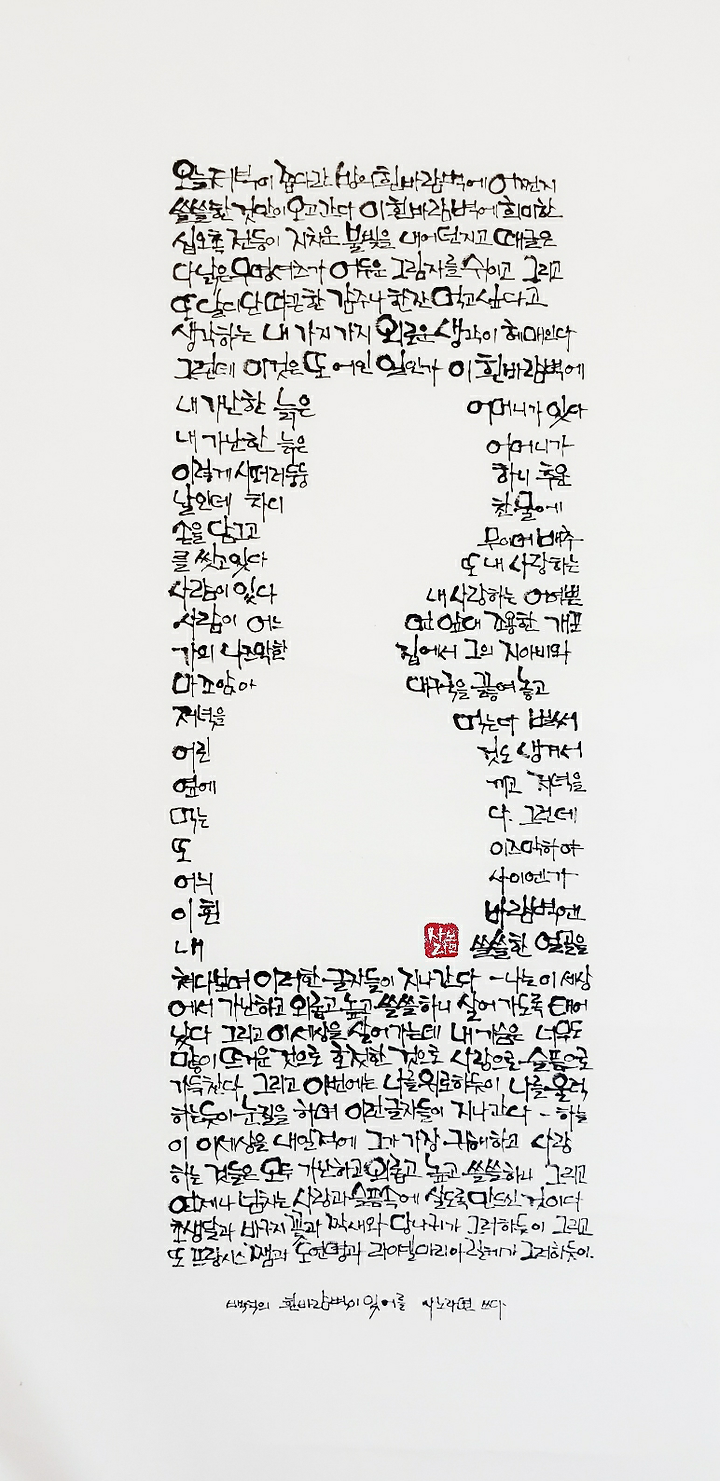 오늘저녁이 좁다란 방의 흰바람벽에 어쩐지
쓸쓸한 것만이 오고간다 이 흰바람벽에 희미한
십오촉 전등이 지치운 불빛을 내어던지고 때글은
다낡은 무명셔츠가 어두운 그림자를 쉬이고 그리고
또 달디단 따끈한 감주나 한잔 먹고싶다고
생각하는 내 가지가지 외로운 생각이 헤매인다
그런데 이것은 또 어인 일인가 이 흰바람벽에
내 가난한 늙은 어머니가 있다
내 가난한 늙은 어머니가
이렇게 시퍼러둥둥 하니 추운
날인데 차디 찬물에
손을 담그고 무이며 배추
를 씻고있다 또 내 사랑하는
사람이 있다 내사랑하는 어여쁜
사람이 어느 먼 앞대 조용한 개포
가의 나즈막한 집에서 그의 지아비와
마조앉아 대구국을 끓여놓고
저녁을 먹는다 벌써
어린 것도 생겨서
옆에 끼고 저녁을
먹는 다. 그런데
또 이즈막하야
어늬 사이엔가
이 흰 바람벽엔
내 쓸쓸한 얼골을
사노라면
쳐다보며 이러한 글자들이 지나간다 - 나는 이 세상
에서 가난하고 외롭고 높고 쓸쓸하니 살어가도록 태어
났다 그리고 이세상을 살어가는데 내 가슴은 너무도
많이 뜨거운 것으로 호젓한 것으로 사랑으로 슬픔으로
가득찬다 그리고 이번에는 나를 위로하듯이 나를 울력
하는듯이 눈질을 하며 이런글자들이 지나간다 - 하늘
이 이세상을 내일적에 그가 가장 귀해하고 사랑
하는 것들은 모두 가난하고 외롭고 높고 쓸쓸하니 그리고
언제나 넘치는 사랑과 슬픔속에 살도록 만드신 것이다
초생달과 바구지꽃과 짝새와 당나귀가 그러하듯이 그리고
또 프랑시스 쨈과 도연명과 라이넬 마리아 릴케가 그러하듯이.
백석의 흰바람벽이 있어를 사노라면 쓰다